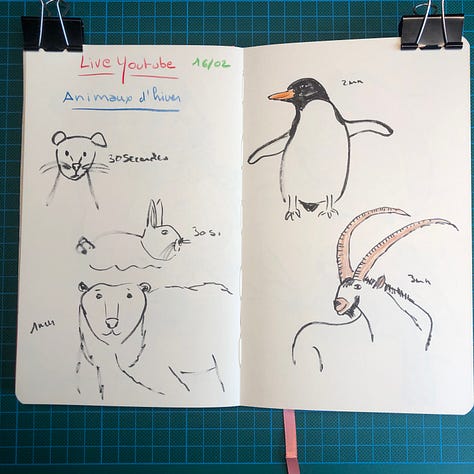 Live Youtube 16/02
Animaux d'hiver
30 secondes
30s.
1mn
2mn
3mn